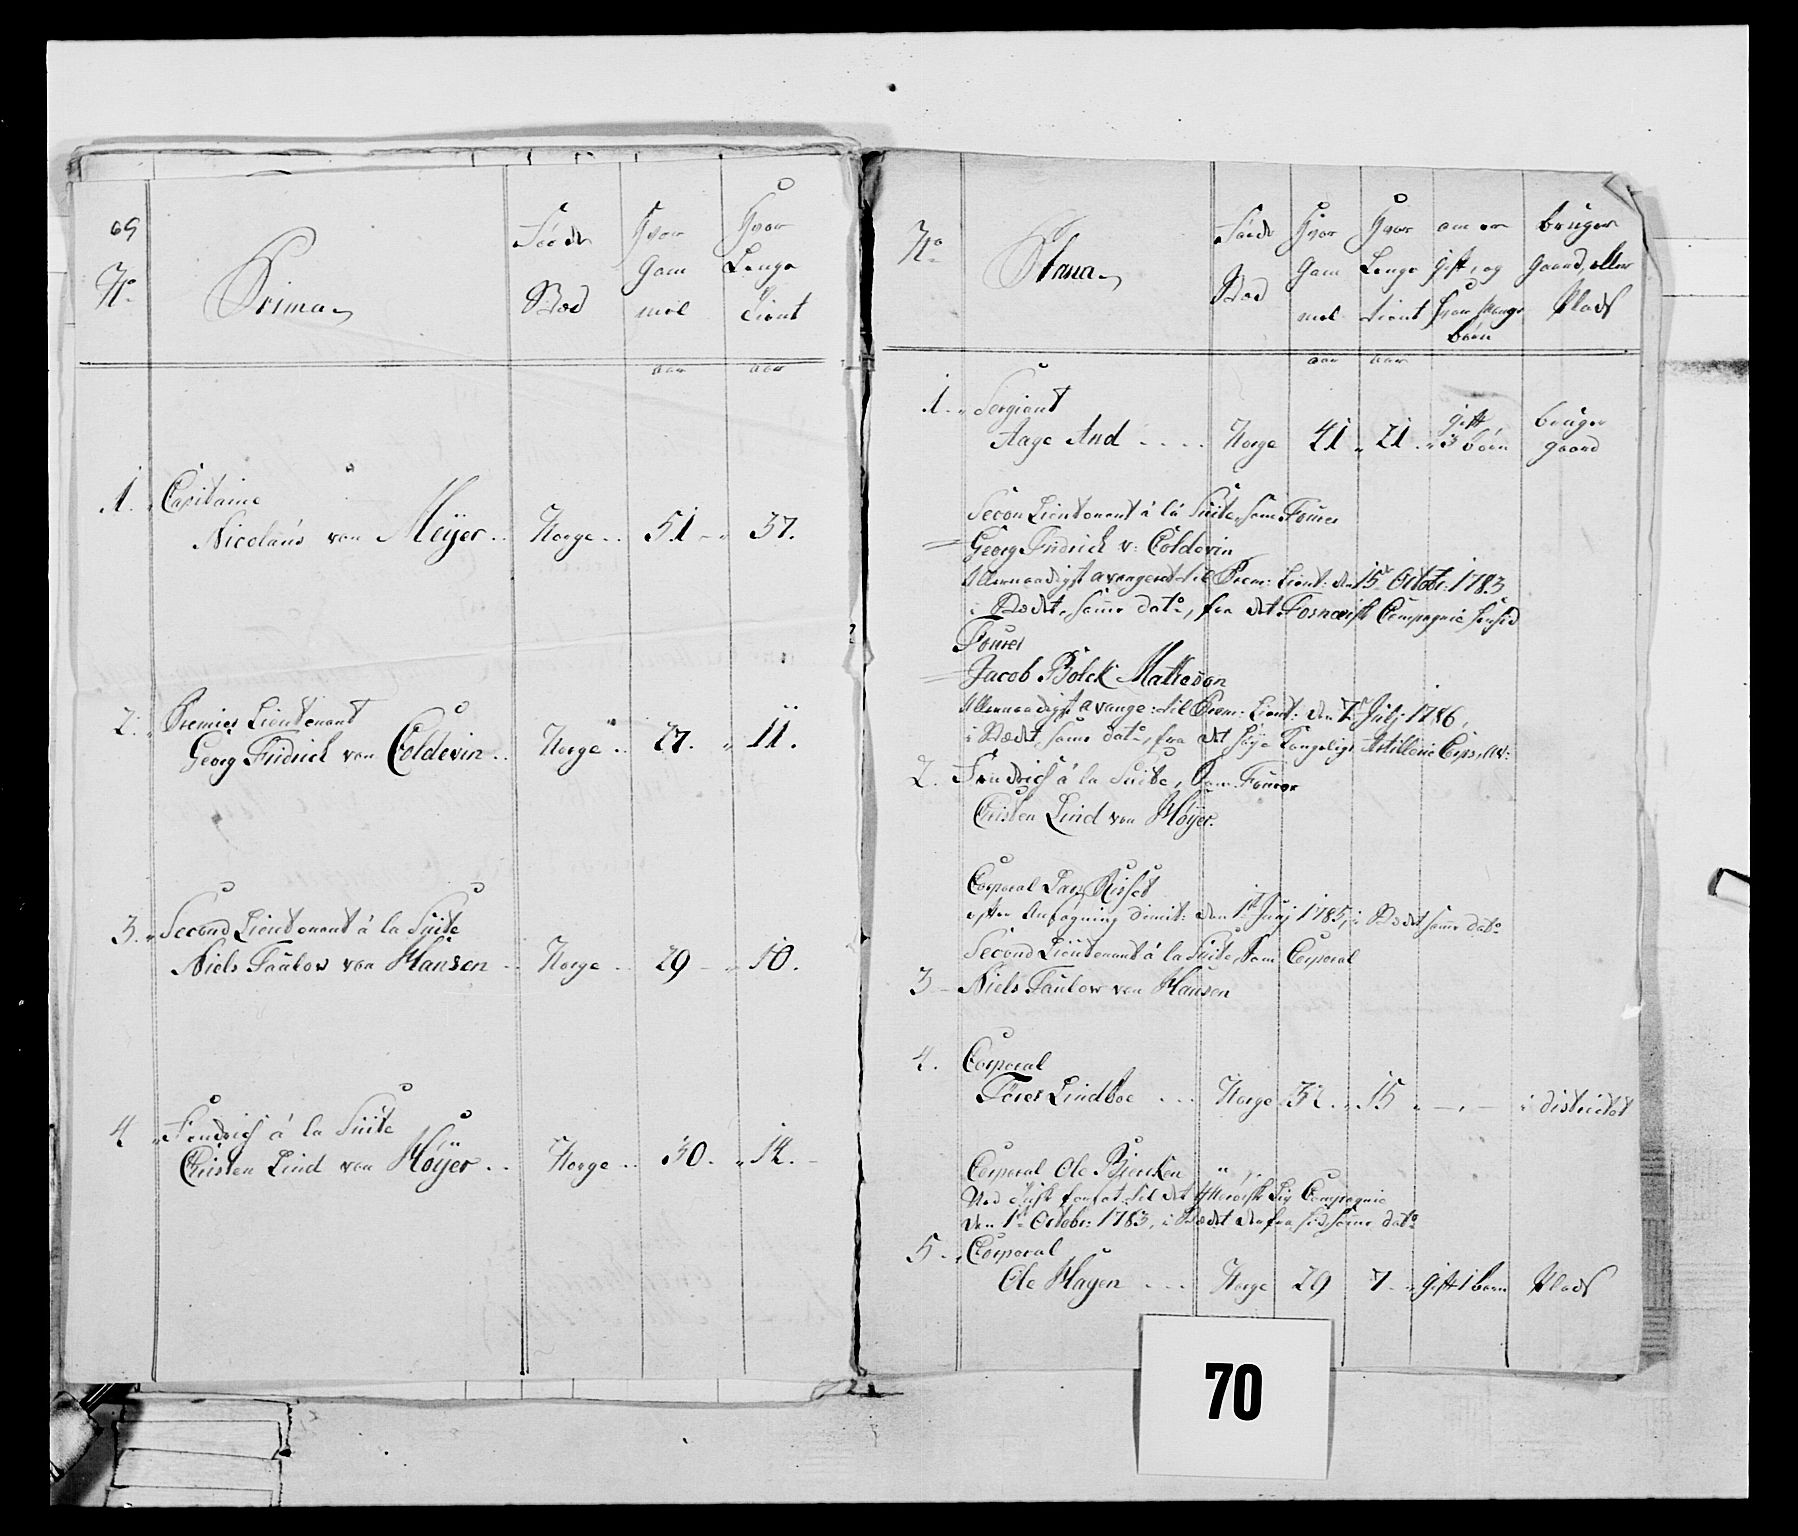 69
No
Prima
Føde
Stæd
Hvor
Gam
mel
Hvor
Lenge
Tient
aar
aar
1. Capitaine
Nicolaús von Meÿer .. Norge .. 51 - " 37.
2. Premier Lieutenant
Georg Fridrich von Coldevin .. Norge .. 27. " 11.
3. Second Lieutenant á la Suite
Niels Faúlow von Hansen .. Norge .. 29 - " 10.
4 Fendrich á la Suite
Christen Lind von Høÿer .. Norge .. 30. " 14. -
No
Stana
Føde
Stæd
Hvor
Gam
mel
Hvor
Lenge
tient
om er
gift, og
hvor mange
børn
bruger
gaard, eller
Plads
aar
aar
1. Sergiant
Aage And .... Norge 41 " 21. " gift 3 børn bruger gaard
Secon Lieutenant á la Suite, som Fourer
Georg Fridrich v: Coldevin
Allernaadigst avangeret til Prem: Lieut: den 15de Octobr: 1783
i Stædet, samme dato, fra det Fosnæiske Compagnie
Fourer
Jacob Bolck Matheson
Allernaadigst avange: til Prem: Lieut: den 7de Julj 1786,
i Stædet, samme dato, fra det Kongelige Artillerie Corps,
2. Fendrich á la Suite, som Fourer
Christen Lind von Høÿer.
Corporal Lars Risset
efter Ansøgning dimit: den 1ste Junj 1785, i Stædet samme dato
Second Lieutenant á la Suite, som Corporal
3 - Niels Faulow von Hansen
4. Corporal
Tører Lindboe ... Norge 32. " 15 " - " - i districtet
Corporal Ole Bierken
forsat til det Compagnie
den 1ste Octobr: 1783, i Stædet derfra samme dato
5. " Corporal
Ole Hagen .... Norge 29 7 - " gift 1 barn Plads
70